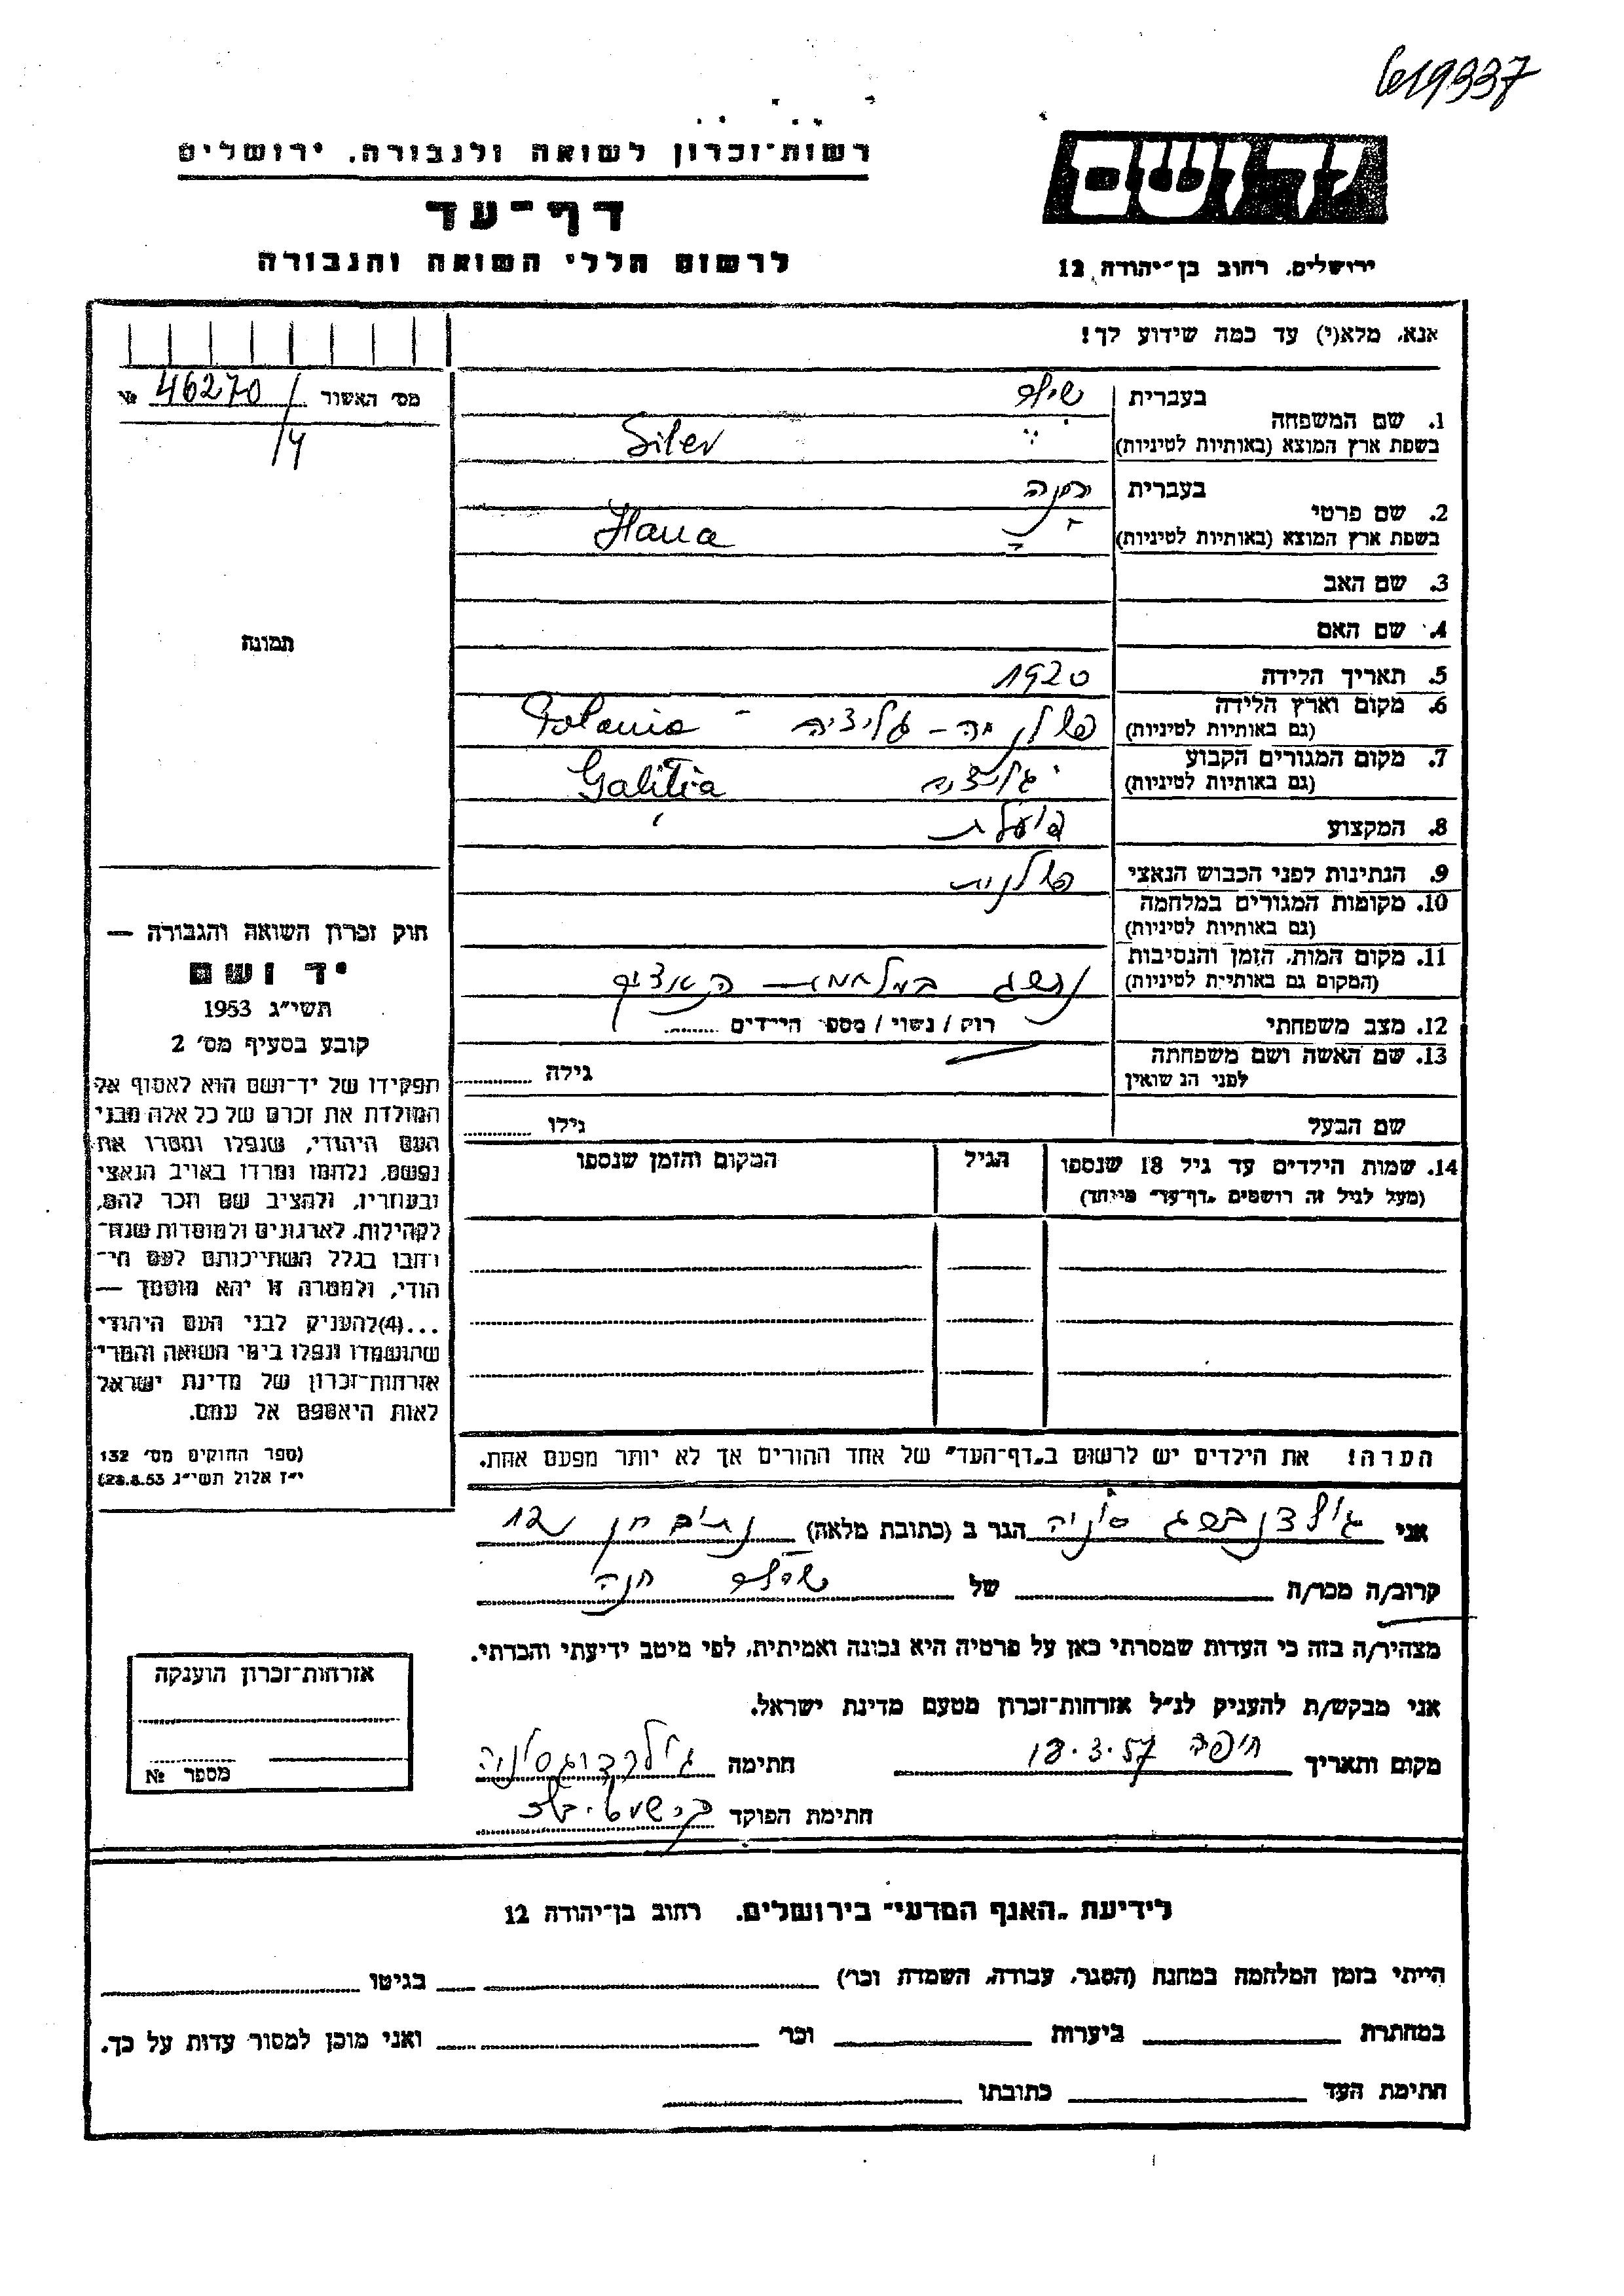 619337
רשות־זכרון לשואה ולגבורה, ירושלים
יד ושם
דף־עד
לרשום חללי השואה והגבורה
ירושלים, רחוב בן־יהודה 12
אנא, מלא(י) עד כמה שידוע לך!
מס׳ האשור 46270 №
/4
בעברית
1. שם המשפחה
בשפת ארץ המוצא (באותיות לטיניות) Siler
בעברית חנה
2. שם פרטי
בשפת ארץ המוצא (באותיות לטיניות) Hana
3. שם האב
4. שם האם
תמונה
5. תאריך הלידה 1920
6. מקום וארץ הלידה פולניה - גליציה - Polania
(גם באותיות לטיניות)
7. מקום המגורים הקבוע גליציה Galitia
(גם באותיות לטיניות)
8. המקצוע פועלת
9. הנתינות לפני הכבוש הנאצי פולנית
10. מקומות המגורים במלחמה
(גם באותיות לטיניות)
11. מקום המות, הזמן והנסיבות
(המקום גם באותיות לטיניות)
12. מצב משפחתי רוק / נשוי / מספר הילדים ........
13. שם האשה ושם משפחתה
לפני הנשואין גילה
שם הבעל גילו
14. שמות הילדים עד גיל 18 שנספו הגיל המקום והזמן שנספו
(מעל לגיל זה רושמים „דף־עד״ מיוחד)
חוק זכרון השואה והגבורה —
יד ושם
תשי״ג 1953
קובע בסעיף מס׳ 2
תפקידו של יד־ושם הוא לאסוף אל
המולדת את זכרם של כל אלה מבני
העם היהודי, שנפלו ומסרו את
נפשם, נלחמו ומרדו באויב הנאצי
ובעוזריו, ולהציב שם וזכר להם,
לקהילות, לארגונים ולמוסדות שנח־
רבו בגלל השתייכותם לעם הי־
הודי, ולמטרה זו יהא מוסמך —
...(4)להעניק לבני העם היהודי
שהושמדו ונפלו בימי השואה והמרי
אזרחות־זכרון של מדינת ישראל
לאות היאספם אל עמם.
(ספר החוקים מס׳ 132
י״ז אלול תשי״ג 28.8.53)
הערה! את הילדים יש לרשום ב„דף־העד״ של אחד ההורים אך לא יותר מפעם אחת.
אני גולדנברג סוניה הגר ב (כתובת מלאה) חן 12
קרוב/ה מכר/ה של חנה
מצהיר/ה בזה כי העדות שמסרתי כאן על פרטיה היא נכונה ואמיתית, לפי מיטב ידיעתי והכרתי.
אני מבקש/ת להעניק לנ״ל אזרחות־זכרון מטעם מדינת ישראל.
מקום ותאריך חיפה 18.3.57 חתימה
חתימת הפוקד
אזרחות־זכרון הוענקה
מספר №
לידיעת „האגף המדעי״ בירושלים, רחוב בן־יהודה 12
הייתי בזמן המלחמה במחנה (הסגר, עבודה, השמדה וכו׳) בגיטו
במחתרת ביערות וכו׳ ואני מוכן למסור עדות על כך.
חתימת העד כתובתו